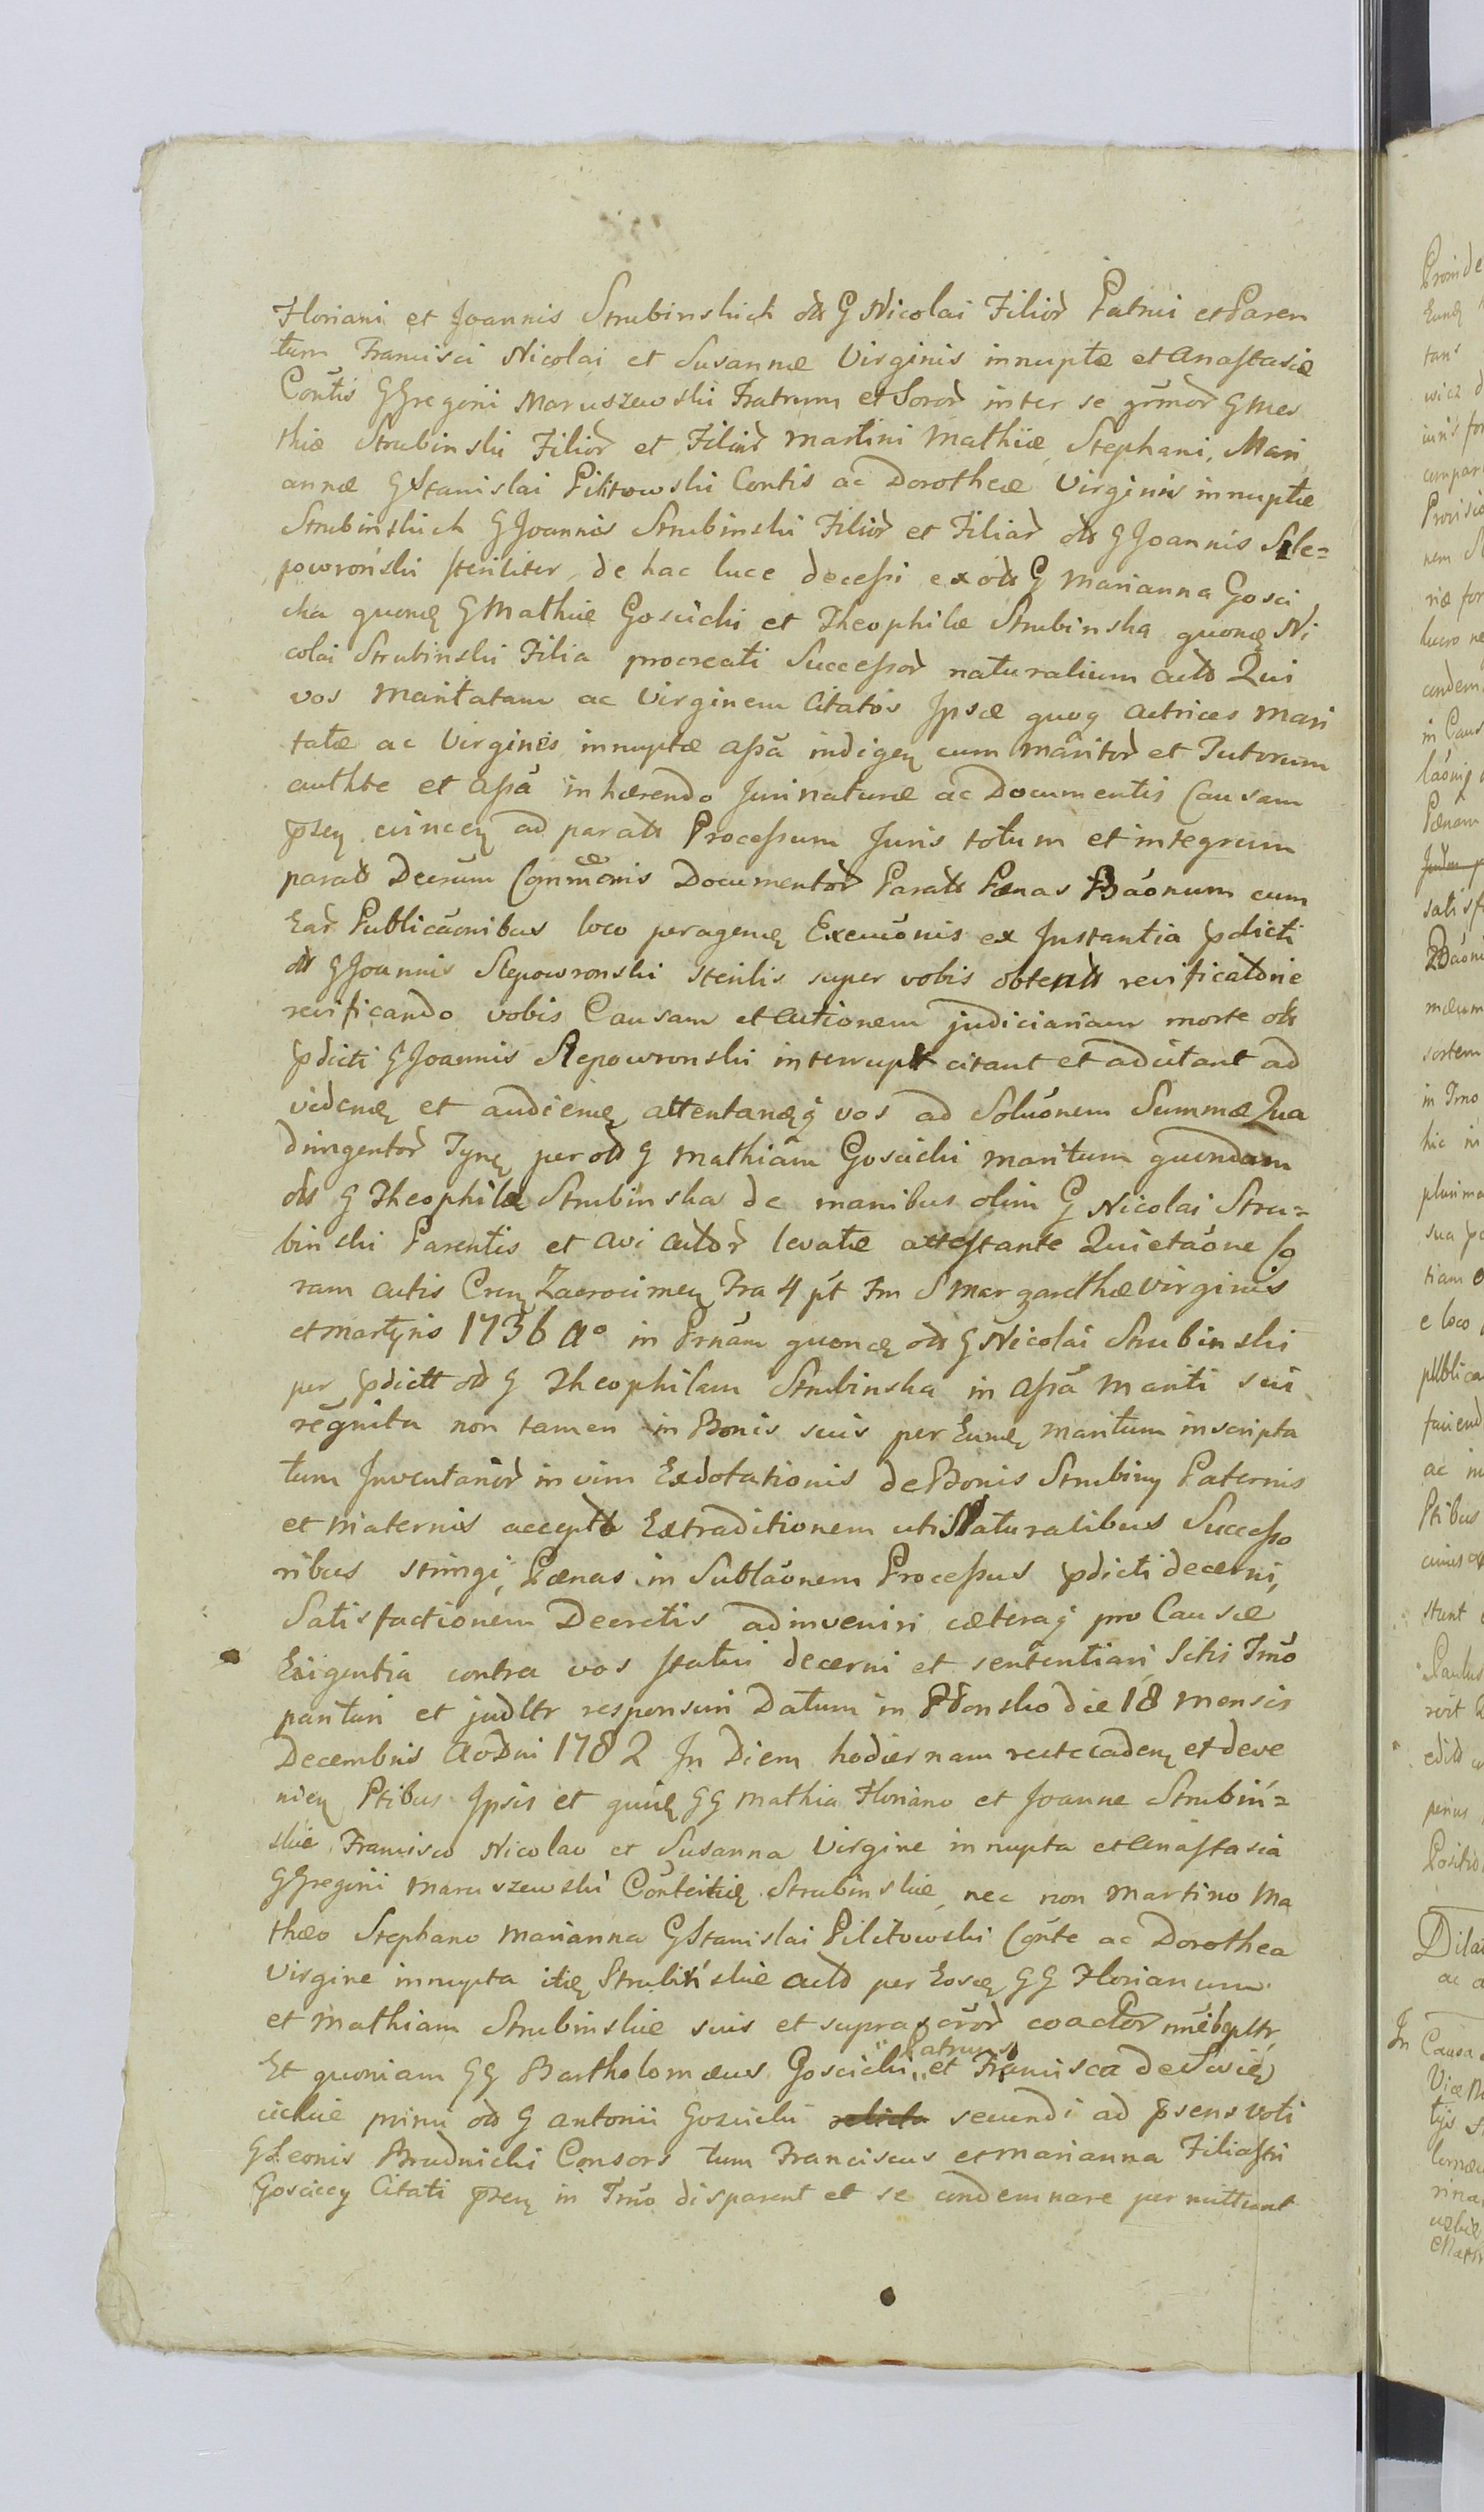 Floriani et Joannis Strubinskich olt G Nicolai Filior Patrui et Paren
tum Francisci Nicolai et Susannæ Virginis innuptæ et Anastasiæ
Contis G Gregorii Maruszewski Fratrum et Soror inter se grmor G Mat
thiæ Strubinski Filior et Filiar Martini Mathiæ Stephani, Mari
annæ G Stanislai Pilitowski Contis ac Dorotheæ Virginis innuptæ
Strubinskich G Joannis Strubinski Filior et Filiar olt G Joannis Sle=
powroński steriliter de hac luce decessi ex olt G Marianna Gosci
cka quonq G Mathiæ Goscicki et Theophilæ Strubinska quonq Ni
colai Strubinski Filia procreati Successor naturalium Actt Qui
vos Maritatam ac Virginem Citatos Ipsæ quoq Actrices Mari
tatæ ac Virgines innuptæ assa indigen cum Maritor et Tutorum
authte et assa inhærendo Juri naturæ ac Documentis Causam
psen evincen ad paratt Processum Juris totum et integrum
paratt Decrum Commonis Documentor Paratt Pænas Baonum cum
Ear Publicaonibus loco peragen Execuonis ex Instantia pdicti
olt G Joannis Slepowronski sterilis super vobis obtentt reificatorie
reificando vobis Causam et Actionem judiciariam morte olt
pdicti G Joannis Slepowronski interrupt citant et adcitant ad
videnq et audienq attentanqq vos ad Soluonem Summæ Qua
dringentor Tynf per olt G Mathiam Goscicki maritum quondam
olt G Theophilæ Strubinska de manibus olim G Nicolai Stru=
binski Parentis et Avi Actor levatæ attestante Quietaone Co
ram Actis Cren Zacrocimen Fra 4 pt Fm S Margarethæ Virginis
et Martyris 1736 Ao in Prnam quonq olt G Nicolai Strubinski
per pdictt olt G Theophilam Strubinska in assa Mariti sui
regnita non tamen in Bonis suis per Eunq Maritum inscripta
tum Inventarior in vim Exdotationis de Bonis Strubiny Paternis
et Maternis acceptt Extraditionem uti Naturalibus Successo
ribus stringi, Pænas in Sublaonem Processus pdicti decerni,
Satisfactionem Decretis adinveniri cæteraq pro Causæ
Exigentia contra vos statui decerni et sententiari Sitis Tmo
parituri et judltr responsuri Datum in Płonsko die 18 Mensis
Decembris Ao Dni 1782 In Diem hodiernam recte caden et deve
nien Ptibus Ipsis et quidq GG Mathia Floriano et Joanne Strubiń=
skie Francisco Nicolao et Susanna Virgine innupta et Anastasia
G Gregorii Maruszewski Conte itiq Strubinskie, nec non Martino Ma
thæo Stephano Marianna G Stanislai Pilitowski Conte ac Dorothea
Virgine innupta itiq Strubińskie Actt per Eosq GG Florianum
et Mathiam Strubinskie suis et suprascror coactor nnibqltr
Et quoniam GG Bartholomæus Goscicki et Patruus Francisca de
cickie primi olt G Antonii Goscicki secundi ad psens voti
G Leonis Brudnicki Consors tum Franciscus et Marianna Filiastri
Gosciccy Citati psen in Tmo disparent et se condemnare permittunt